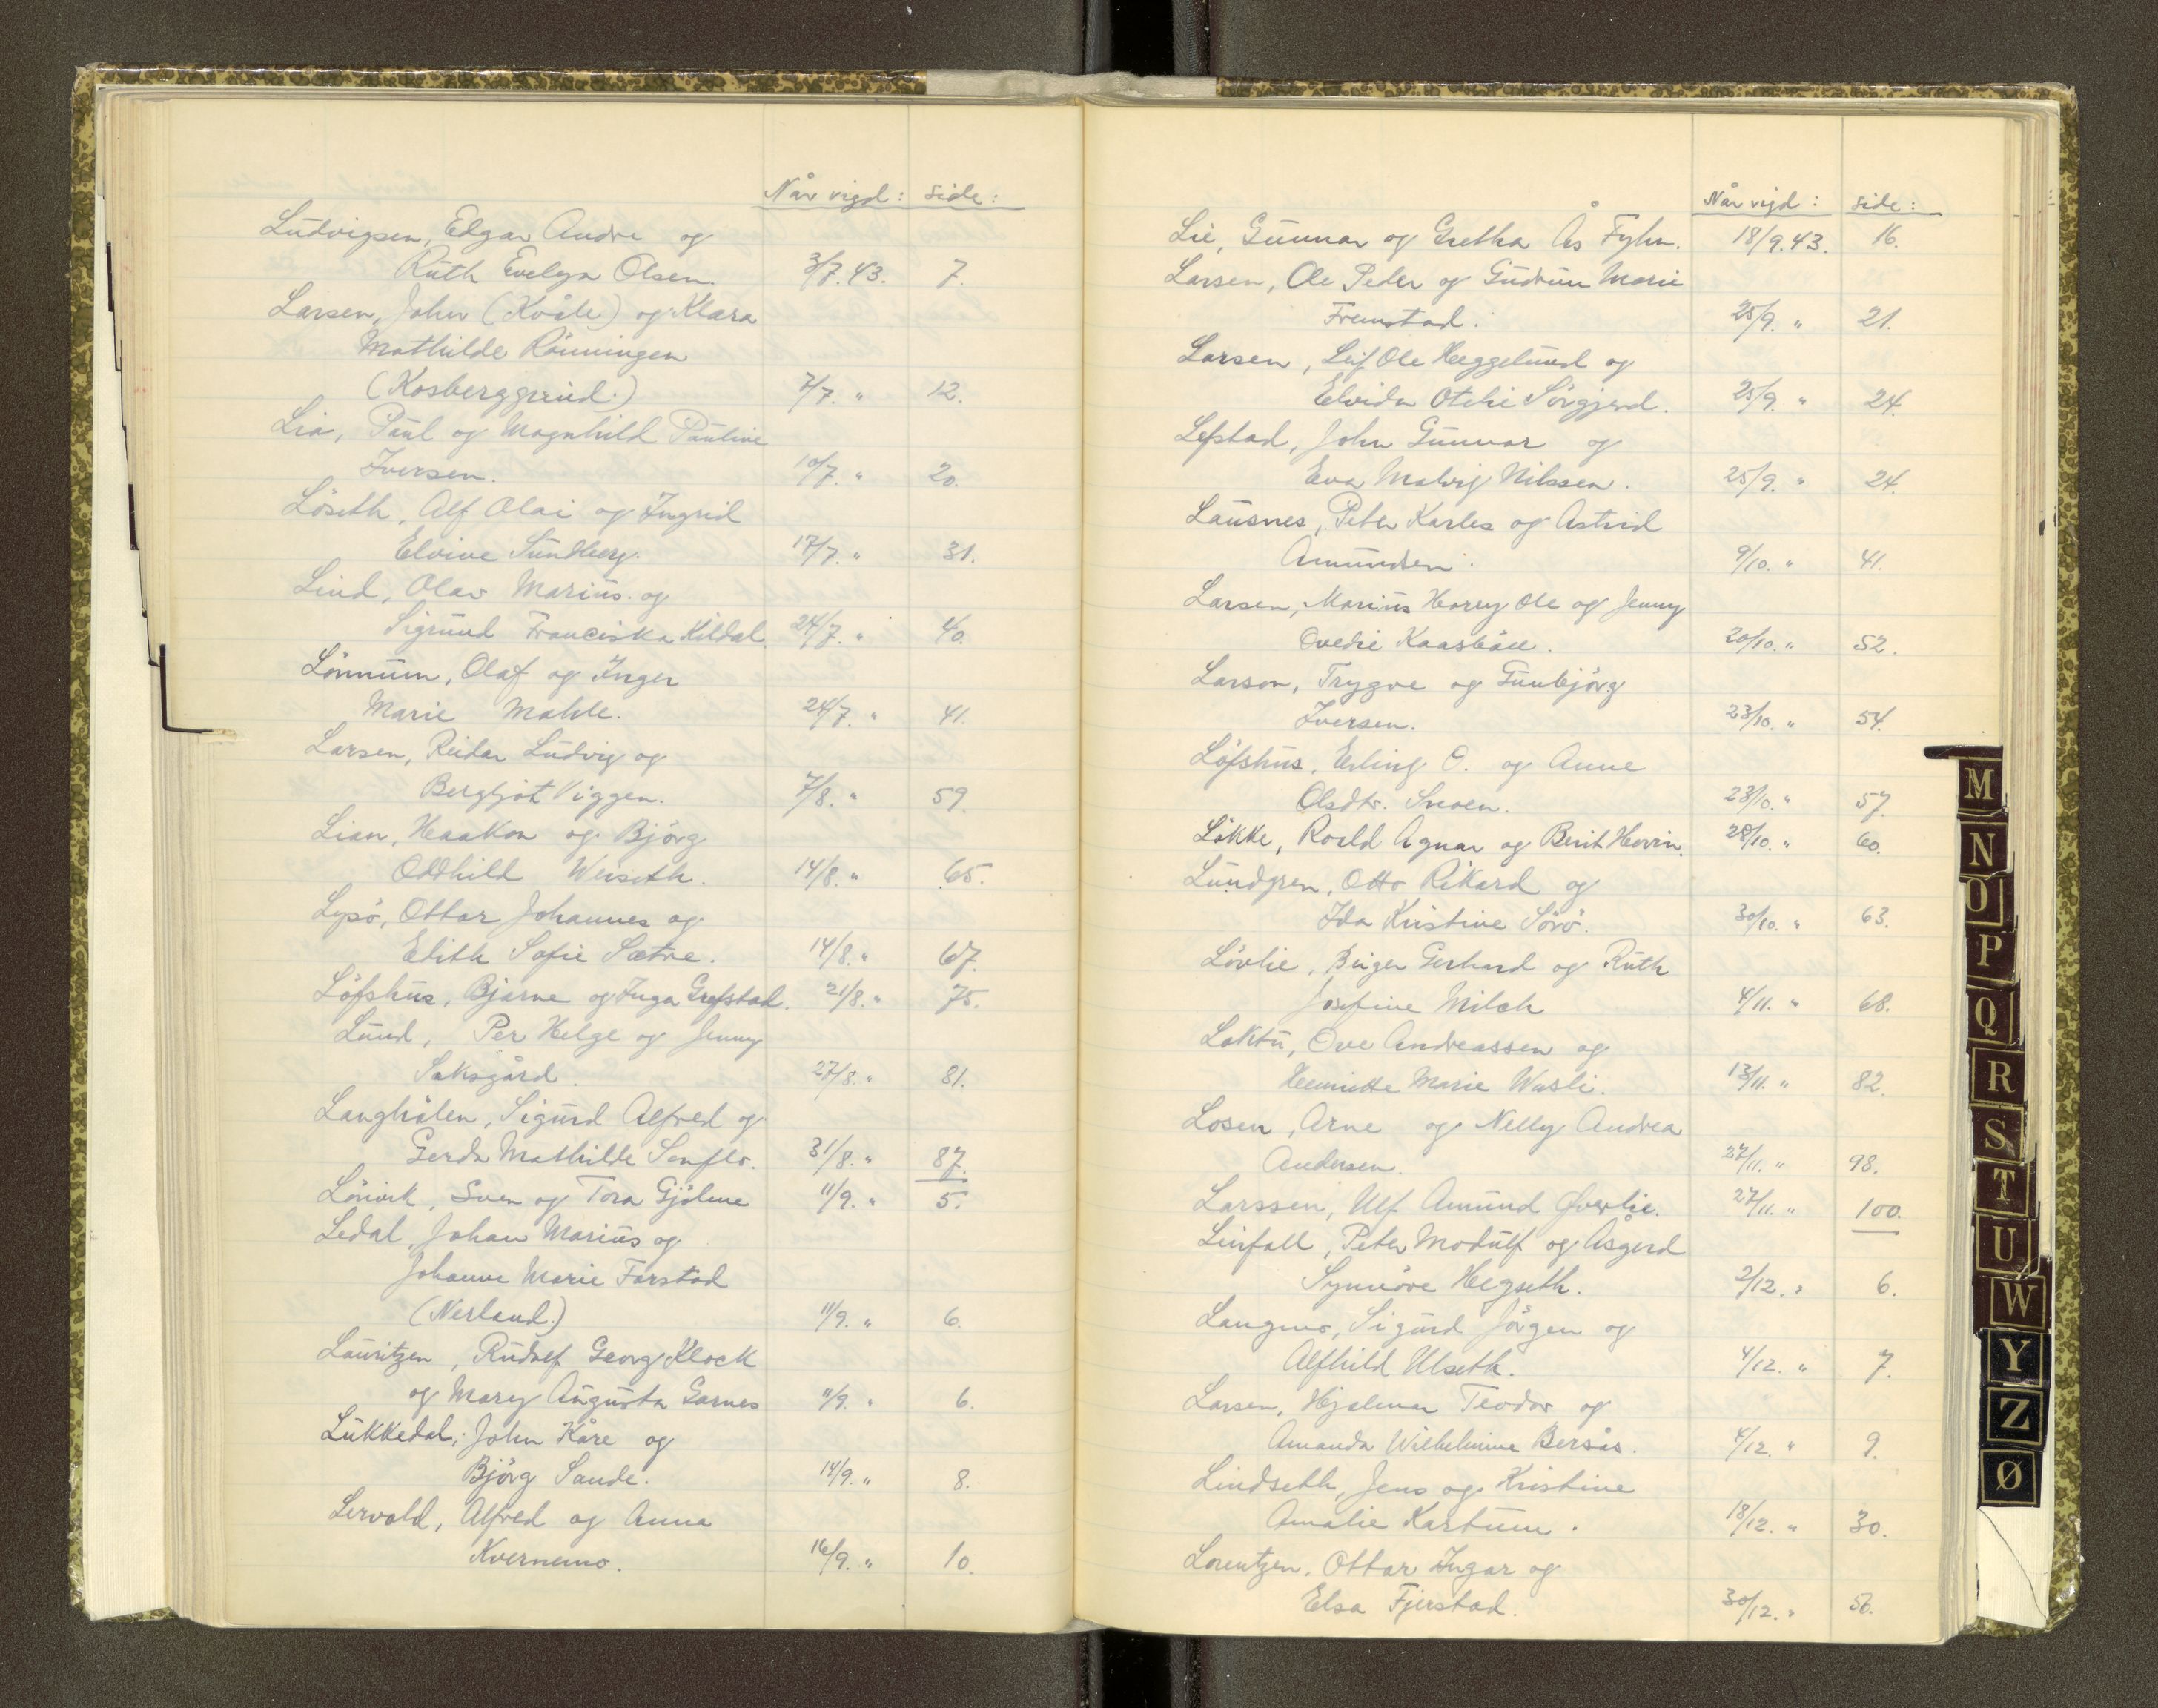 Når vigd: side:
Ludvigsen, Edgar Andre og
Ruth Evelyn Olsen. 3/7.43. 7.
Larsen, John (Kvåle) og Klara
Mathilde Rönningen
(Kosberggrind.) 7/7. " 12.
Lia, Paul og Magnhild Pauline
Iversen. 10/7. " 20.
Löseth, Alf Olai og Ingrid
Elvine Sundberg. 17/7. " 31.
Lind, Olav Marius og
Sigrund Franciska Kildal 24/7. " 40.
Lönnum, Olaf og Inger
Marie Mahle. 24/7. " 41.
Larsen, Reidar Ludvig og
Bergljot Viggen. 7/8. " 59.
Lian, Haakon og Björg
Oddhild Weiseth. 14/8. " 65.
Lysö, Ottar Johannes og
Edith Sofie Sætre. 14/8. " 67.
Löfshus, Bjarne og Inga Grefstad. 21/8. " 75.
Lund, Per Helge og Jenny
Saksgård. 27/8. " 81.
Langhölen, Sigurd Alfred og
Gerda Mathilde 31/8. " 87.
Lönvik, Sven og Tora Gjölme 11/9. " 5.
Ledal, Johan Marius og
Johanne Marie Farstad
(Nerland.) 11/9. " 6.
Lauritzen, Rudolf Georg Klock
og Mary Augusta Garnes 11/9. " 6.
Lukkedal, John Kåre og
Björg Sande. 14/9. " 8.
Lervold, Alfred og Anna
Kvernemo. 16/9. " 10.
Når vigd: side:
Lie, Gunnar og Gretha Ås Fyhn. 18/9.43. 16.
Larsen, Ole Peder og Gudrun Marie
Fremstad. 25/9. " 21.
Larsen, Leif Ole Heggelund og
Elvida Otelie Sörgjerd. 25/9. " 24.
Lefstad, John Gunnar og
Eva Malvig Nilssen. 25/9. " 24.
Lausnes, Peter Karles og Astrid
Amundsen. 9/10. " 41.
Larsen, Marius Harry Ole og Jenny
Ovedie Kaasböll. 20/10. " 52.
Larson, Trygve og Gunbjörg
Iversen. 23/10. " 54.
Löfshus, Erling O. og Anne
Olsdtr. Snoen. 23/10. " 57.
Lökke, Roald Agnar og Berit Hovrin. 28/10. " 60.
Lundgren, Otto Rikard og
Ida Kristine Sörö. 30/10. " 63.
Lövlie, Birger Gerhard og Ruth
Josefine Milch 4/11. " 68.
Loktu, Ove Andreassen og
Henriette Marie Wasli. 13/11. " 82.
Losen, Arne og Nelly Andrea
Andersen. 27/11. " 98.
Larssen, Ulf Amund Øverlie. 27/11. " 100.
Leirfall, Peter Modulf og Åsgerd
Synnöve Hegseth. 2/12. " 6.
Langmo, Sigurd Jörgen og
Alfhild Ulseth. 4/12. " 7.
Larsen, Hjalmar Teodor og
Amanda Wilhelmine Bersås. 4/12. " 9.
Lindseth, Jens og Kristine
Amalie Kartum. 18/12. " 30.
Lorentzen, Ottar Ingar og
Elsa Fjerstad. 30/12. " 56.
M
N
O
P
Q
R
S
T
U
W
Y
Z
Ø